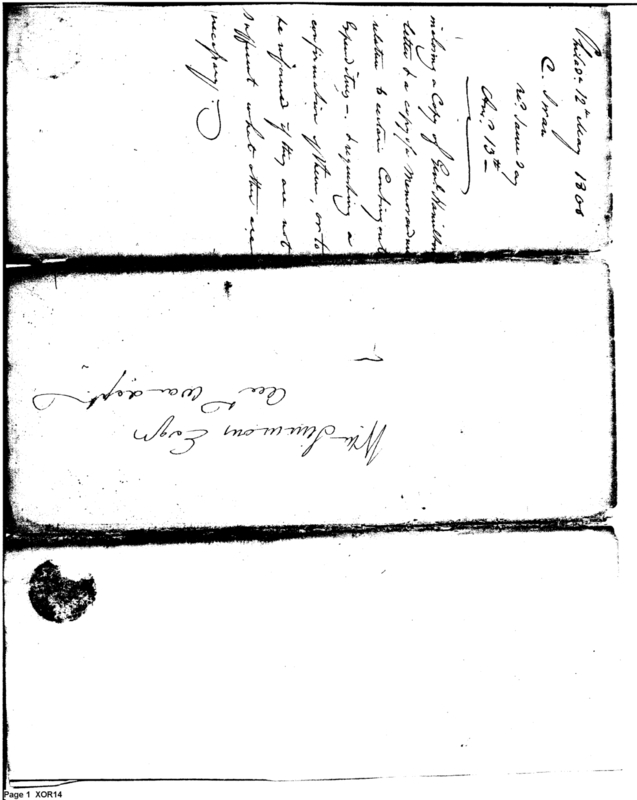 Philad.ª 12.th May 1800
C. Swan
rec.d Same day
Ans.d 13.th
inclosing a Copy of Genl. Hamiltons
letter & a copy of a Memorandum
relative to certain Contingent
Expenditures — & requesting a
confirmation of them, or to
be informed if they are not
sufficient what other are
necessary.
Wm Simmons Esqr
Acct War dept.
Page 1 XOR14